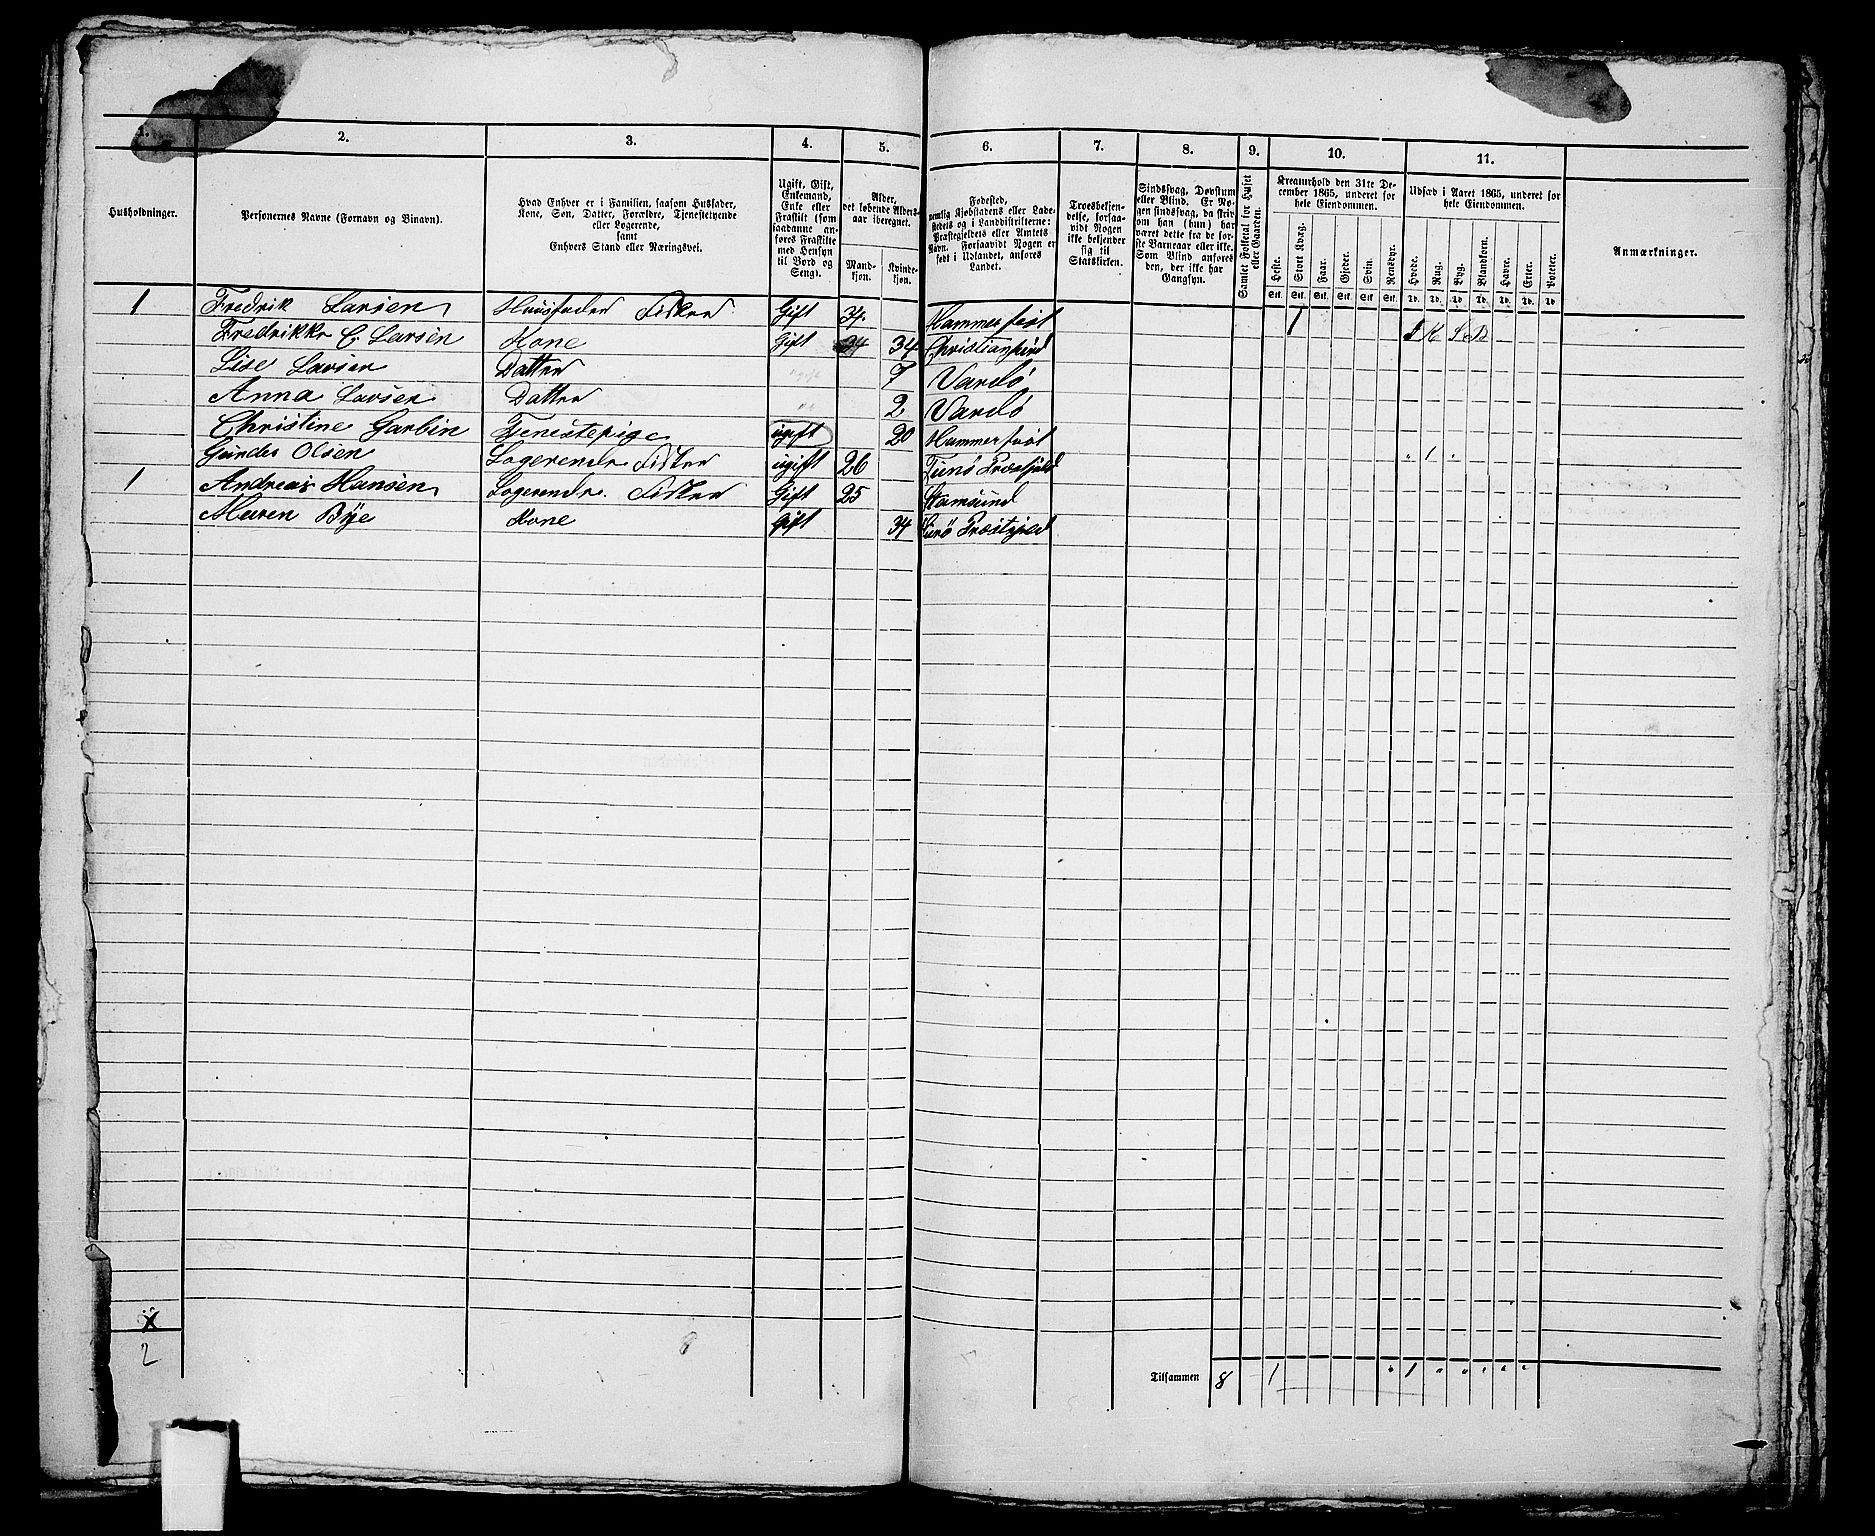 1. 2. 3. 4. 5. 6. 7. 8. 9. 10. 11.
Husholdninger.
Personernes Navne (Fornavn og Binavn).
Hvad Enhver er i Familien, saasom Husfader,
Kone, Søn, Datter, Forældre, Tjenestetyende
eller Logerende,
samt
Enhvers Stand eller Næringsvei.
Ugift, Gift,
Enkemand,
Enke eller
Fraskilt (som
saadanne an-
føres Fraskilte
med Hensyn
til Bord og
Seng).
Alder,
det løbende Alders-
aar iberegnet.
Mand-
kjøn.
Kvinde-
kjøn.
Fødested,
nemlig Kjøbstadens eller Lade-
stedets og i Landdistrikterne:
Præstegjeldets eller Amtets
Navn. Forsaavidt Nogen er
født i Udlandet, anføres
Landet.
Troesbekjen-
delse, forsaa-
vidt Nogen
ikke bekjender
sig til
Statskirken.
Sindssvag, Døvstum
eller Blind. Er No-
gen sindssvag, da skriv
om han (hun) har
været dette fra de før-
ste Barneaar eller ikke.
Som Blind anføres
den, der ikke har
Gangsyn.
Samlet Folketal for Huset
eller Gaarden.
Kreaturhold den 31te De-
cember 1865, underet for
hele Eiendommen.
Heste. Stort Kvæg. Faar. Gjeder. Svin. Rensdyr.
Stk. Stk. Stk. Stk. Stk. Stk.
Udsæd i Aaret 1865, underet for
hele Eiendommen.
Hvede. Rug. Byg. Blandkorn. Havre. Erter. Poteter.
Td. Td. Td. Td. Td. Td. Td.
Anmærkninger.
1 Fredrik Larsen Huusfader Fisker Gift 34. Hammerfest 1
Fredrikke C. Larsen Kone Gift 34 34
Lise Larsen Datter 7 Vardø
Anna Larsen Datter 2 Vardø
Christine Garbin Tjenestepige ugift 20 Hammerfest
Gunder Olsen Logerende Fisker ugift 26 1
1 Andreas Hansen Logerende. Fisker Gift 25
Maren Bye Kone Gift 34
2
8
Tilsammen 8 1 " 1 " " " " "